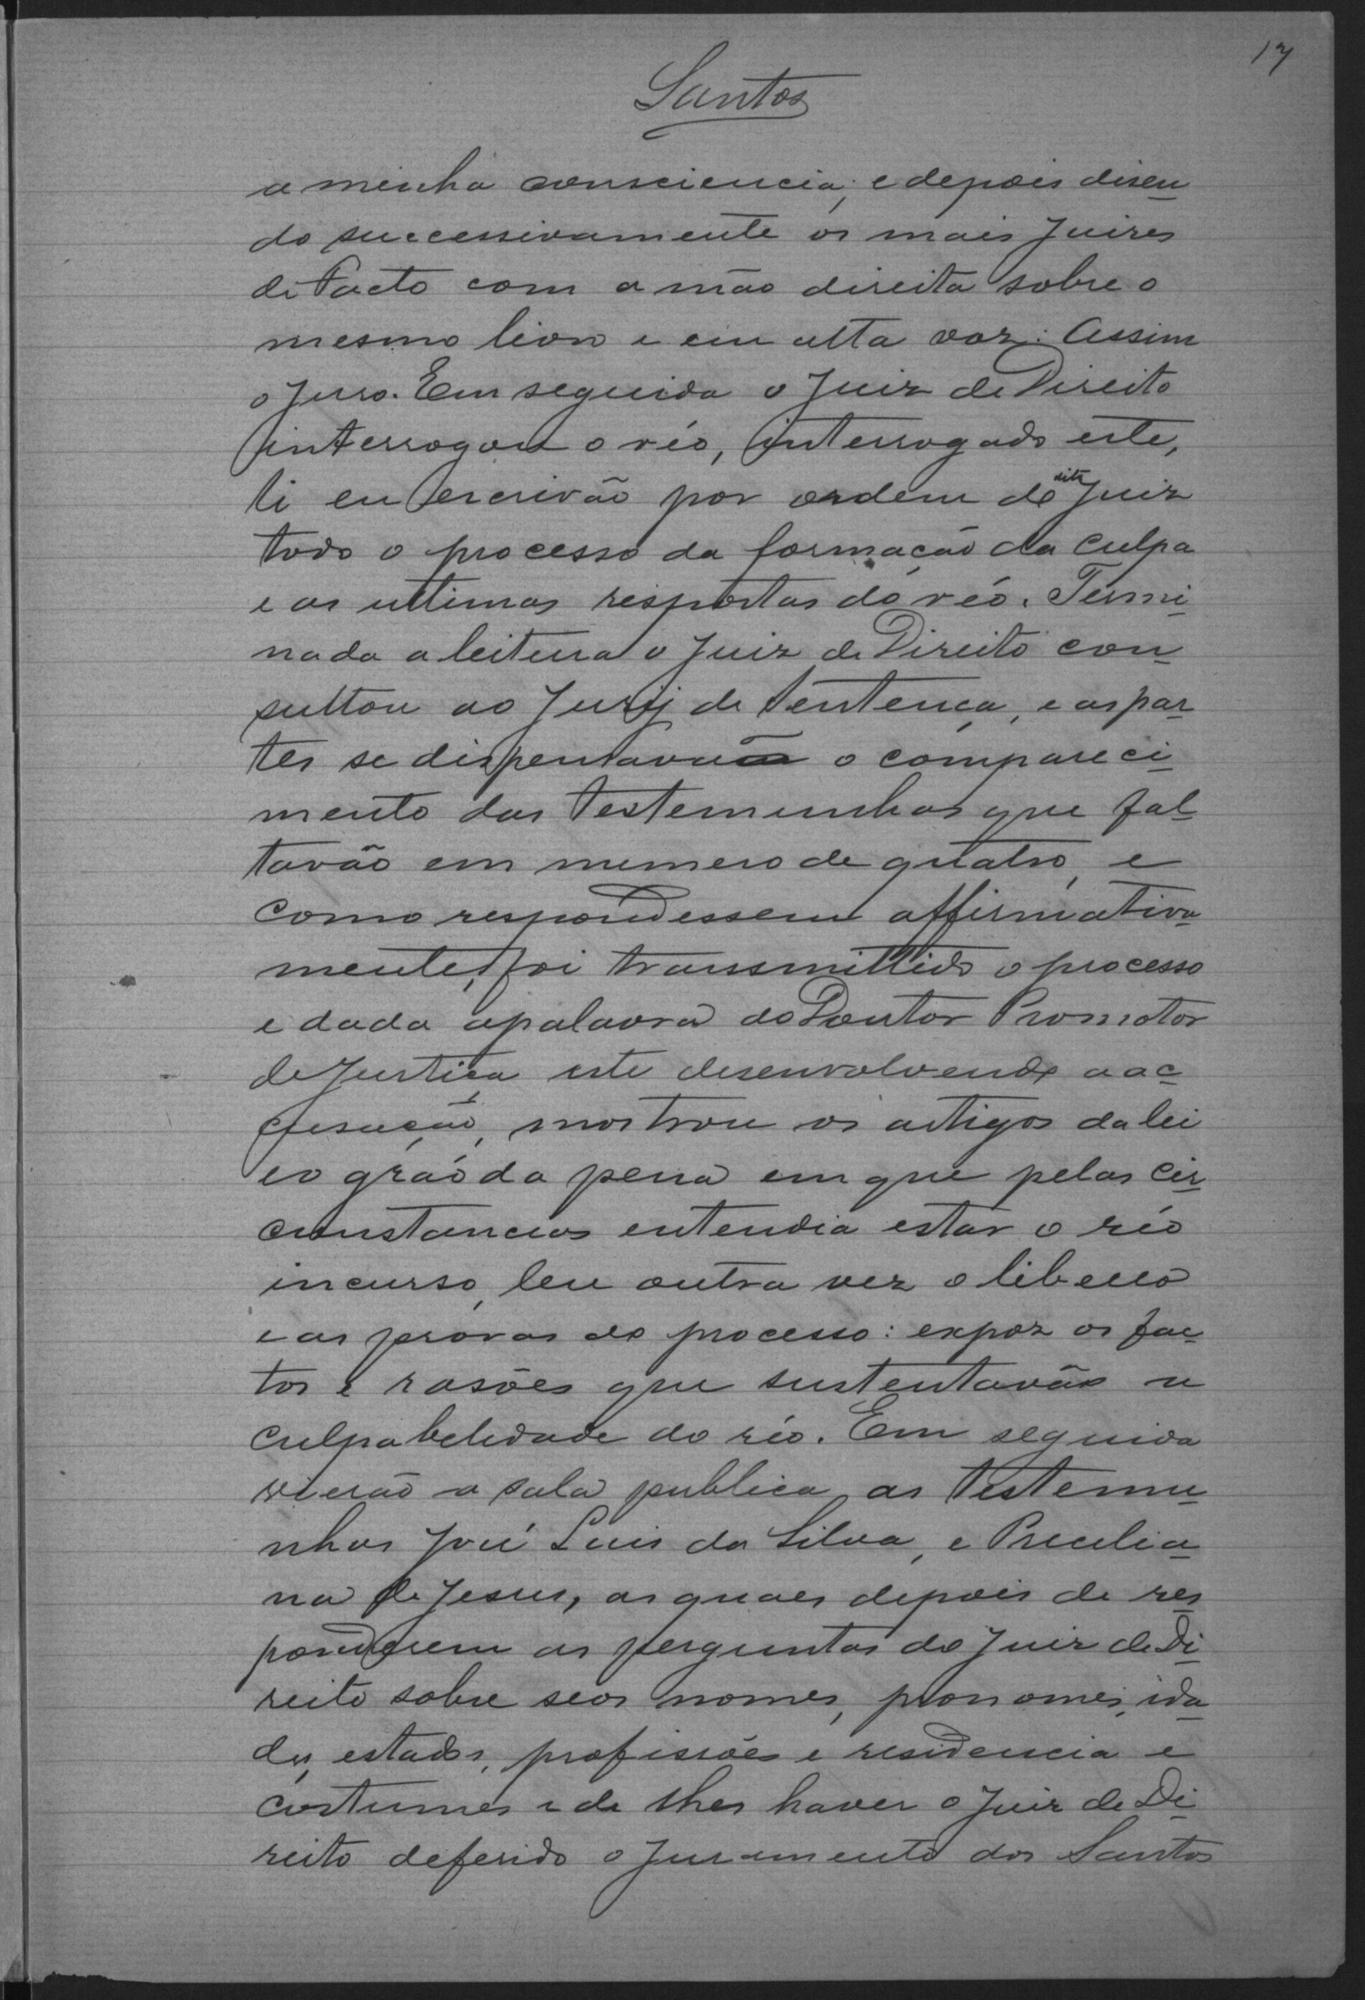 17
Santos
a minha consciencia, e depois disen
do successivamente os mais Juizes
de Facto com a mão direita sobre o
mesmo livro e em alta voz: Assim
o juro. Em seguida o Juiz de Direito
interrogou o réo, interrogado este,
li eu Escrivão por ordem do dito Juiz
todo o processo da formação da culpa
e as ultimas respostas do réo. Termi
nada a leitura o Juiz de Direito con
sultou ao Jury de Sentença, e as par
tes se dispensavão o compareci
mento das testemunhas que fal
tavão em numero de quatro, e
como respondessem affirmativa
mente, foi transmittido o processo
e dada a palavra ao Doutor Promotor
de Justiça este desenvolvendo a ac
cusação, mostrou os artigos da lei
e o gráo da pena em que pelas cir
cunstancias entendia estar o réo
incurso, leu outra vez o libello
e as provas do processo: expoz os fac
tos e rasões que sustentavão a
culpabelidade do réo. Em seguida
vierão a sala publica as testemu
nhas José Luis da Silva, e Preculia
na de Jesus, as quaes depois de res
ponderem as perguntas do Juiz de Di
reito sobre seos nomes, pronomes, ida
des, estados, profissões e residencia e
costumes e de lhes haver o Juiz de Di
reito deferido o Juramento dos Santos